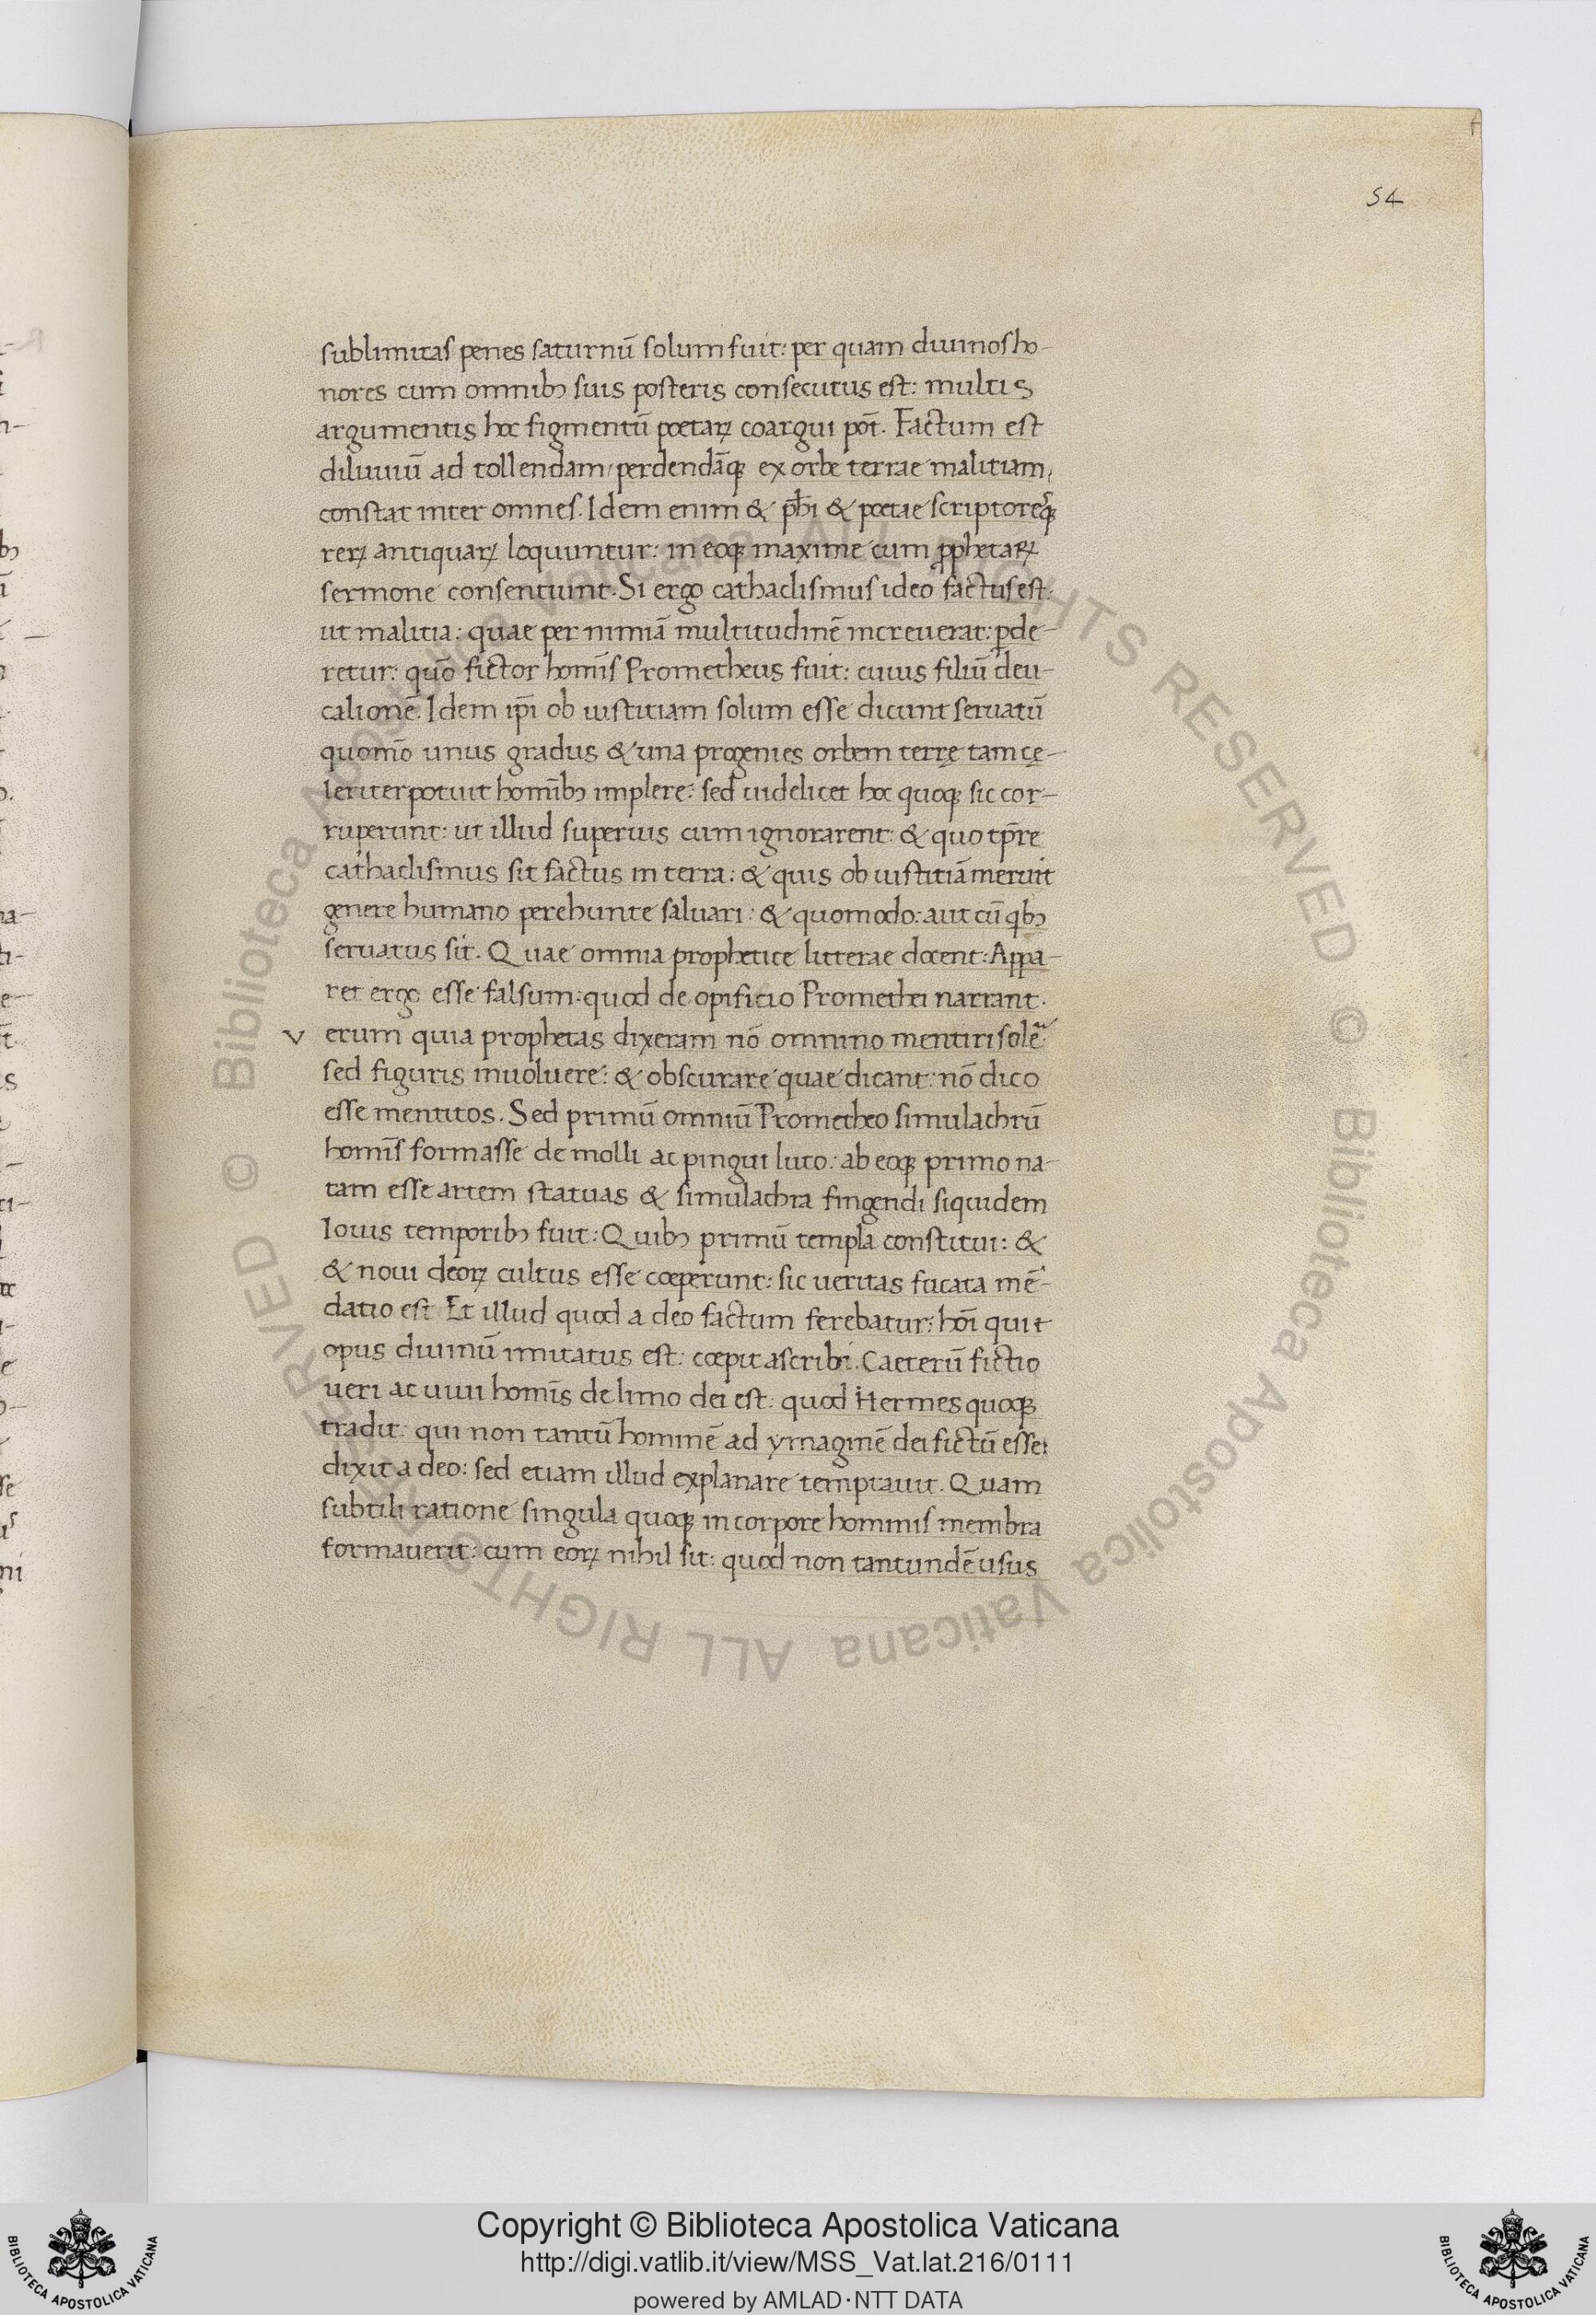 54
sublimitas penes saturnū solum fuit: per quam diuinos ho-
nores cum omnibꝫ suis posteris consecutus est: multis
argumentis hoc figmentū poetaꝝ coargui pōt. Factum est
diluuiū ad tollendam/perdendāqꝫ ex orbe terrae malitiam,
constat inter omnes. Idem enim & ph̄i & poetae scriptoresqꝫ
reꝝ antiquaꝝ loquuntur: in eoqꝫ maxime cum ꝓphetaꝝ
sermone consentiunt. Si ergo cathaclismus ideo factus est:
ut malitia: quae per nimiā multitudinē increuerat: ꝑde-
retur: quō fictor homīs Prometheus fuit: cuius filiū deu-
calionē. Idem ip̄i ob iustitiam solum esse dicunt seruatū
quomō unus gradus & una progenies orbem terrę tam cę-
leriter potuit homībꝫ implere: sed uidelicet hoc quoqꝫ sic cor-
ruperunt: ut illud superius cum ignorarent: & quo tp̄re
cathaclismus sit factus in terra: & quis ob iustitiā meruit
genere humano pereunte saluari: & quomodo: aut cū qbꝫ
seruatus sit. Quae omnia prophetice litterae docent: Appa-
ret ergo esse falsum: quod de opificio Promethei narrant.
v erum quia prophetas dixeram nō omnino mentiri solē
sed figuris inuoluere: & obscurare quae dicant: nō dico
esse mentitos. Sed primū omniū Prometheo simulachrū
homīs formasse de molli ac pingui luto: ab eoqꝫ primo na-
tam esse artem statuas & simulachra fingendi siquidem
Iouis temporibꝫ fuit: Quibꝫ primū templa constitui: &
& noui deoꝝ cultus esse coeperunt: sic ueritas fucata mē-
datio est Et illud quod a deo factum ferebatur: hōi quit
opus diuinū imitatus est: coepit ascribi. Caeterū fictio
ueri ac uiui homīs de limo dei est: quod Hermes quoqꝫ
tradit: qui non tantū hominē ad ymaginē dei fictū esse
dixit a deo: sed etiam illud explanare temptauit. Quam
subtili ratione singula quoqꝫ in corpore hominis membra
formauerit: cum eoꝝ nihil sit: quod non tantundē usus
© Biblioteca Apostolica Vaticana ALL RIGHTS RESERVED © Biblioteca Apostolica Vaticana ALL RIGHTS RESERVED
Copyright © Biblioteca Apostolica Vaticana
http://digi.vatlib.it/view/MSS_Vat.lat.216/0111
powered by AMLAD·NTT DATA
BIBLIOTECA APOSTOLICA VATICANA
BIBLIOTECA APOSTOLICA VATICANA